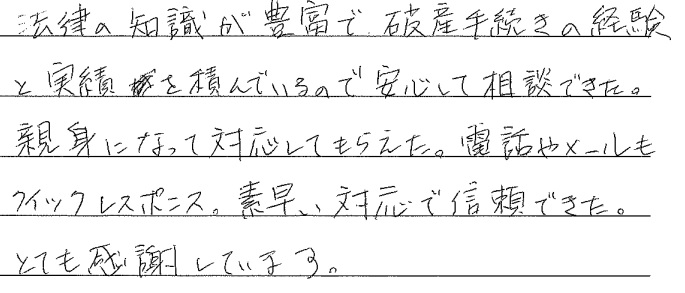 法律の知識が豊富で破産手続きの経験
と実績を積んでいるので安心して相談できた。
親身になって対応してもらえた。電話やメールも
クイックレスポンス。素早い対応で信頼できた。
とても感謝しています。